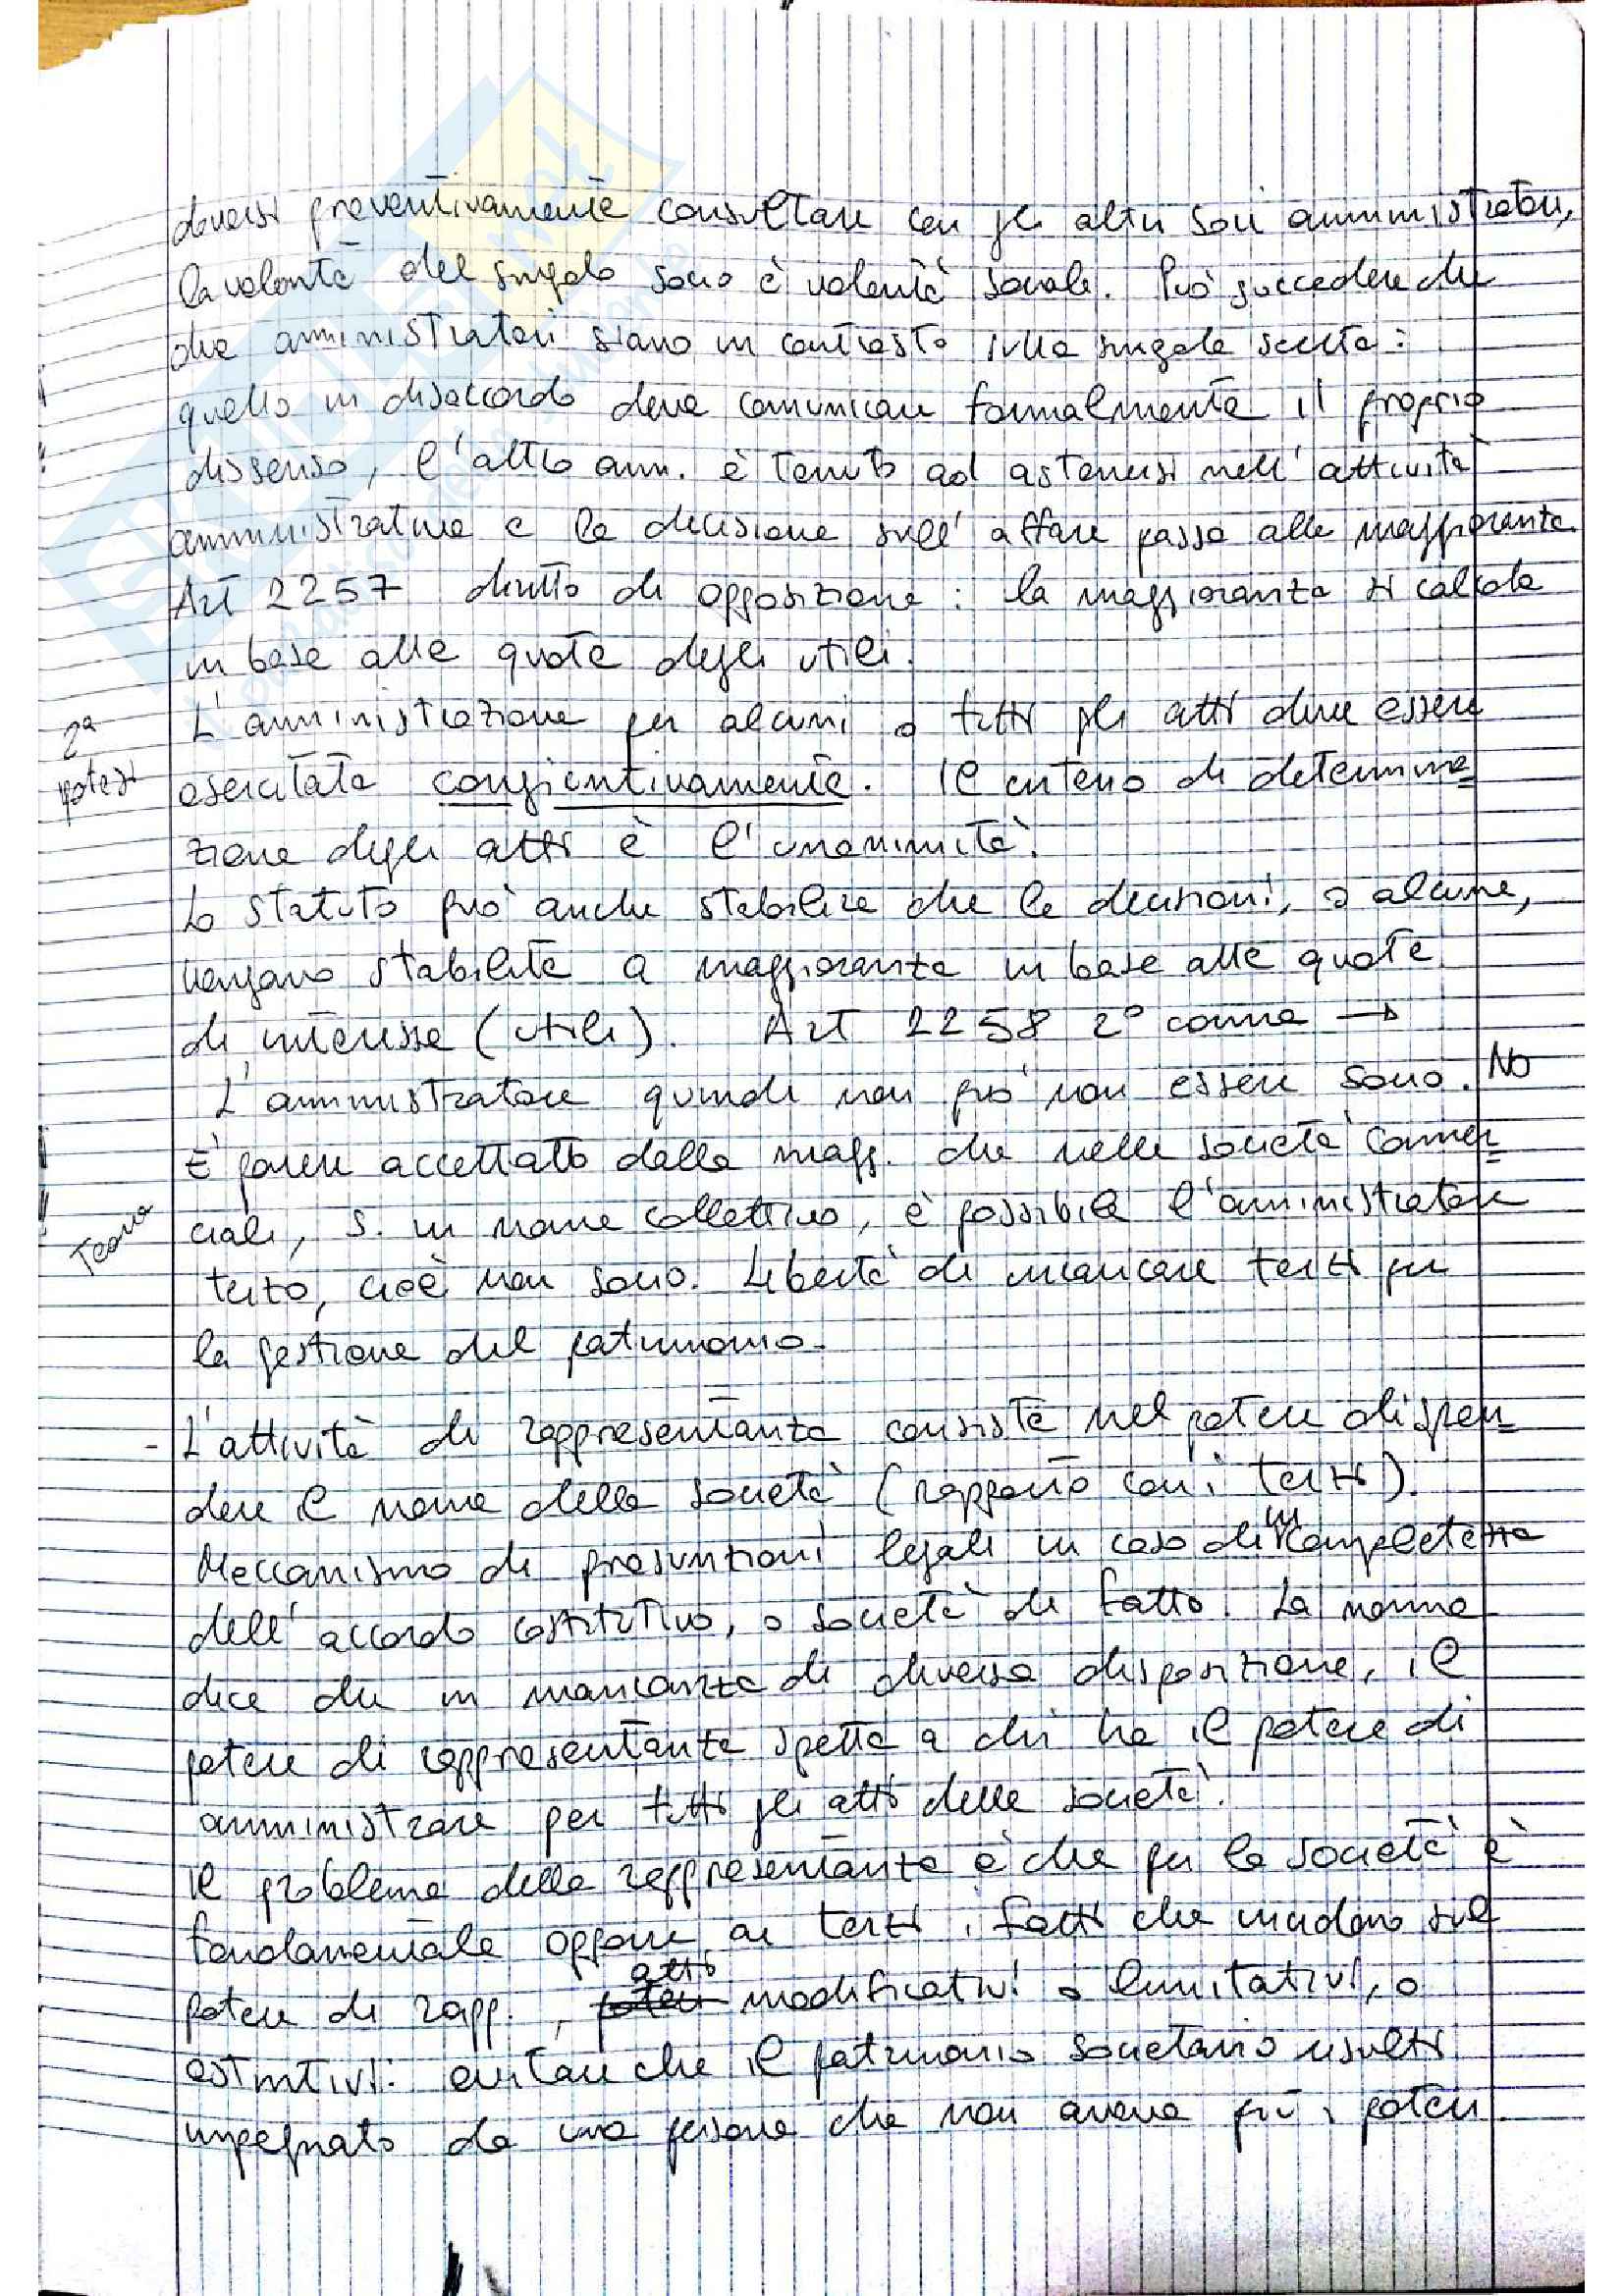 doversi preventivamente consultare con gli altri soci amministratori,
la volontà del singolo socio è volontà sociale. Può succedere che
due amministratori siano in contrasto sulla singola scelta:
quello in disaccordo deve comunicare formalmente il proprio
dissenso, l'altro amm. è tenuto ad astenersi nell'attività
amministrativa e la decisione sull'affare passa alla maggioranza.
Art 2257 diritto di opposizione: la maggioranza si calcola
in base alle quote degli utili.
2ª ipotesi
L'amministrazione per alcuni o tutti gli atti deve essere
esercitata congiuntivamente. Il criterio di determina=
zione degli atti è l'unanimità.
Lo statuto può anche stabilire che le decisioni, o alcune,
vengano stabilite a maggioranza in base alle quote
di interesse (utili). Art 2258 2° comma →
L'amministratore quindi non può non essere socio. No
E' parere accettato dalla magg. che nelle società commer=
Teoria
ciali, s. in nome collettivo, è possibile l'amministratore
terzo, cioè non socio. Libertà di incaricare terzi per
la gestione del patrimonio.
- L'attività di rappresentanza consiste nel potere di spen=
dere il nome della società (rapporto con i terzi).
Meccanismo di presunzioni legali in caso di incompletezza
dell'accordo costitutivo, o società di fatto. La norma
dice che in mancanza di diversa disposizione, il
potere di rappresentanza spetta a chi ha il potere di
amministrare per tutti gli atti della società.
Il problema della rappresentanza è che per la società è
fondamentale opporre ai terzi i fatti che incidono sul
potere di rapp., atti modificativi o limitativi, o
estintivi: evitare che il patrimonio societario risulti
impegnato da una persona che non aveva più i poteri.